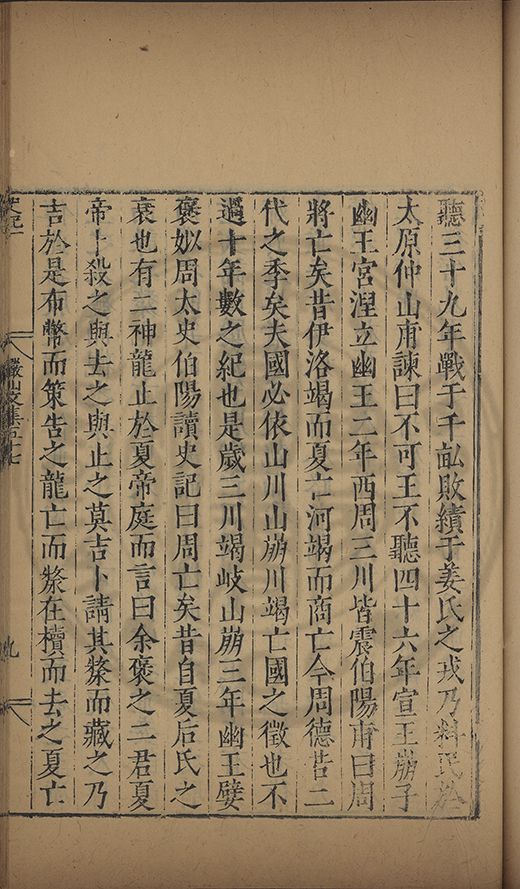 聽三十九年戰于千畝敗績于姜氏之戎乃料民於
太原仲山甫諫曰不可王不聽四十六年宣王崩子
幽王宮湼立幽王二年西周三川皆震伯陽甫曰周
將亡矣昔伊洛竭而夏亡河竭而商亡今周德若二
代之季矣夫國必依山川山崩川竭亡國之徵也不
過十年數之紀也是歲三川竭岐山崩三年幽王嬖
褒姒周太史伯陽讀史記曰周亡矣昔自夏后氏之
衰也有二神龍止於夏帝庭而言曰余褒之二君夏
帝卜殺之與去之與止之莫吉卜請其漦而藏之乃
吉於是布幣而策告之龍亡而漦在櫝而去之夏亡
九